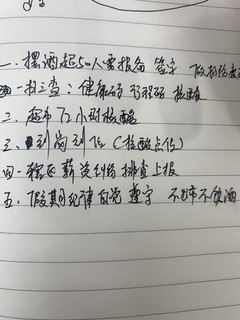 一、摆酒超50人要报备 签字 做核酸
一扫三查：健康码 行程码 核酸
二、每市72小时核酸
三、到岗到位（核酸点位）
四、拖欠薪资纠纷排查上报
五、假期纪律自觉遵守 不出市不饮酒